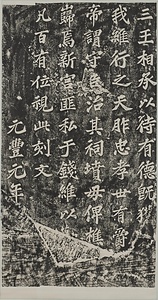 三王相承以待有德既獲
我維行之天胙忠孝世有爵
帝謂守臣治其祠墳毋俾樵
巋焉新宮匪私于錢維以
凡百有位視此刻文
元豐元年